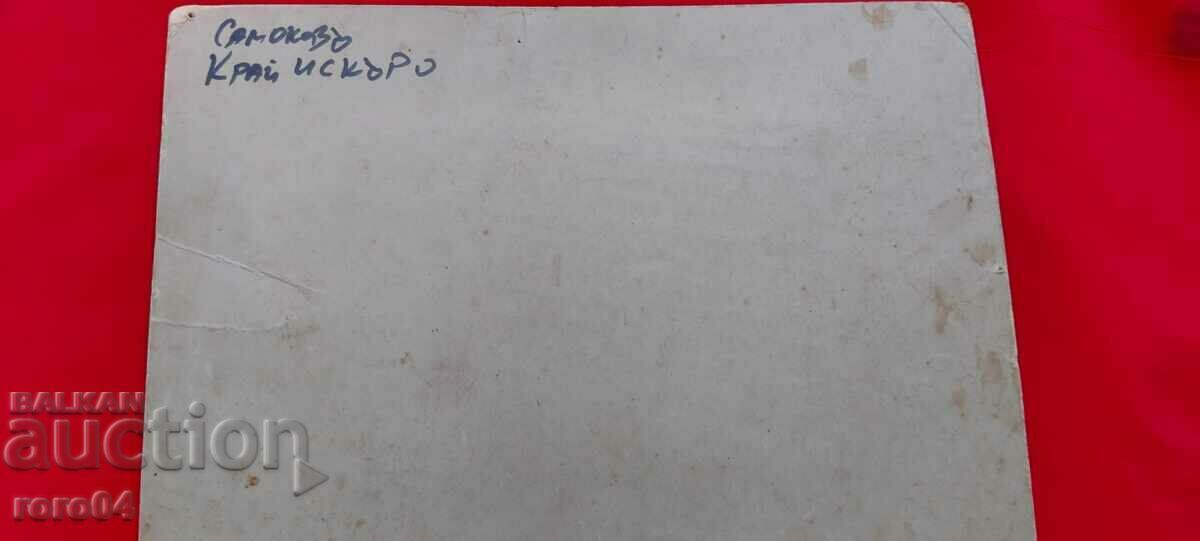 Самоковъ
Край Искъро
BALKAN
auction
roro04